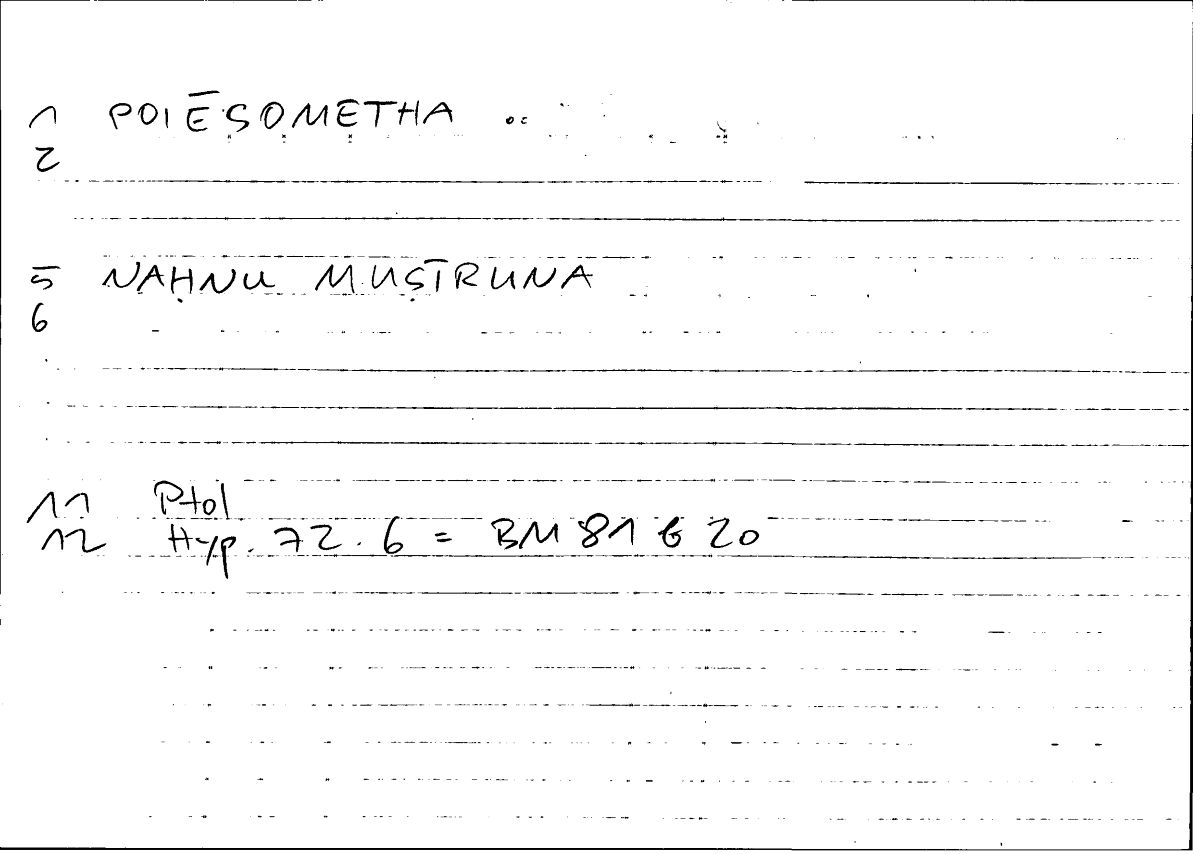 1 POIĒSOMETHA ..
2
5 NAḤNU MUṢĪRUNA
6
11 Ptol
12 Hyp. 72.6 = BM 81 6 20